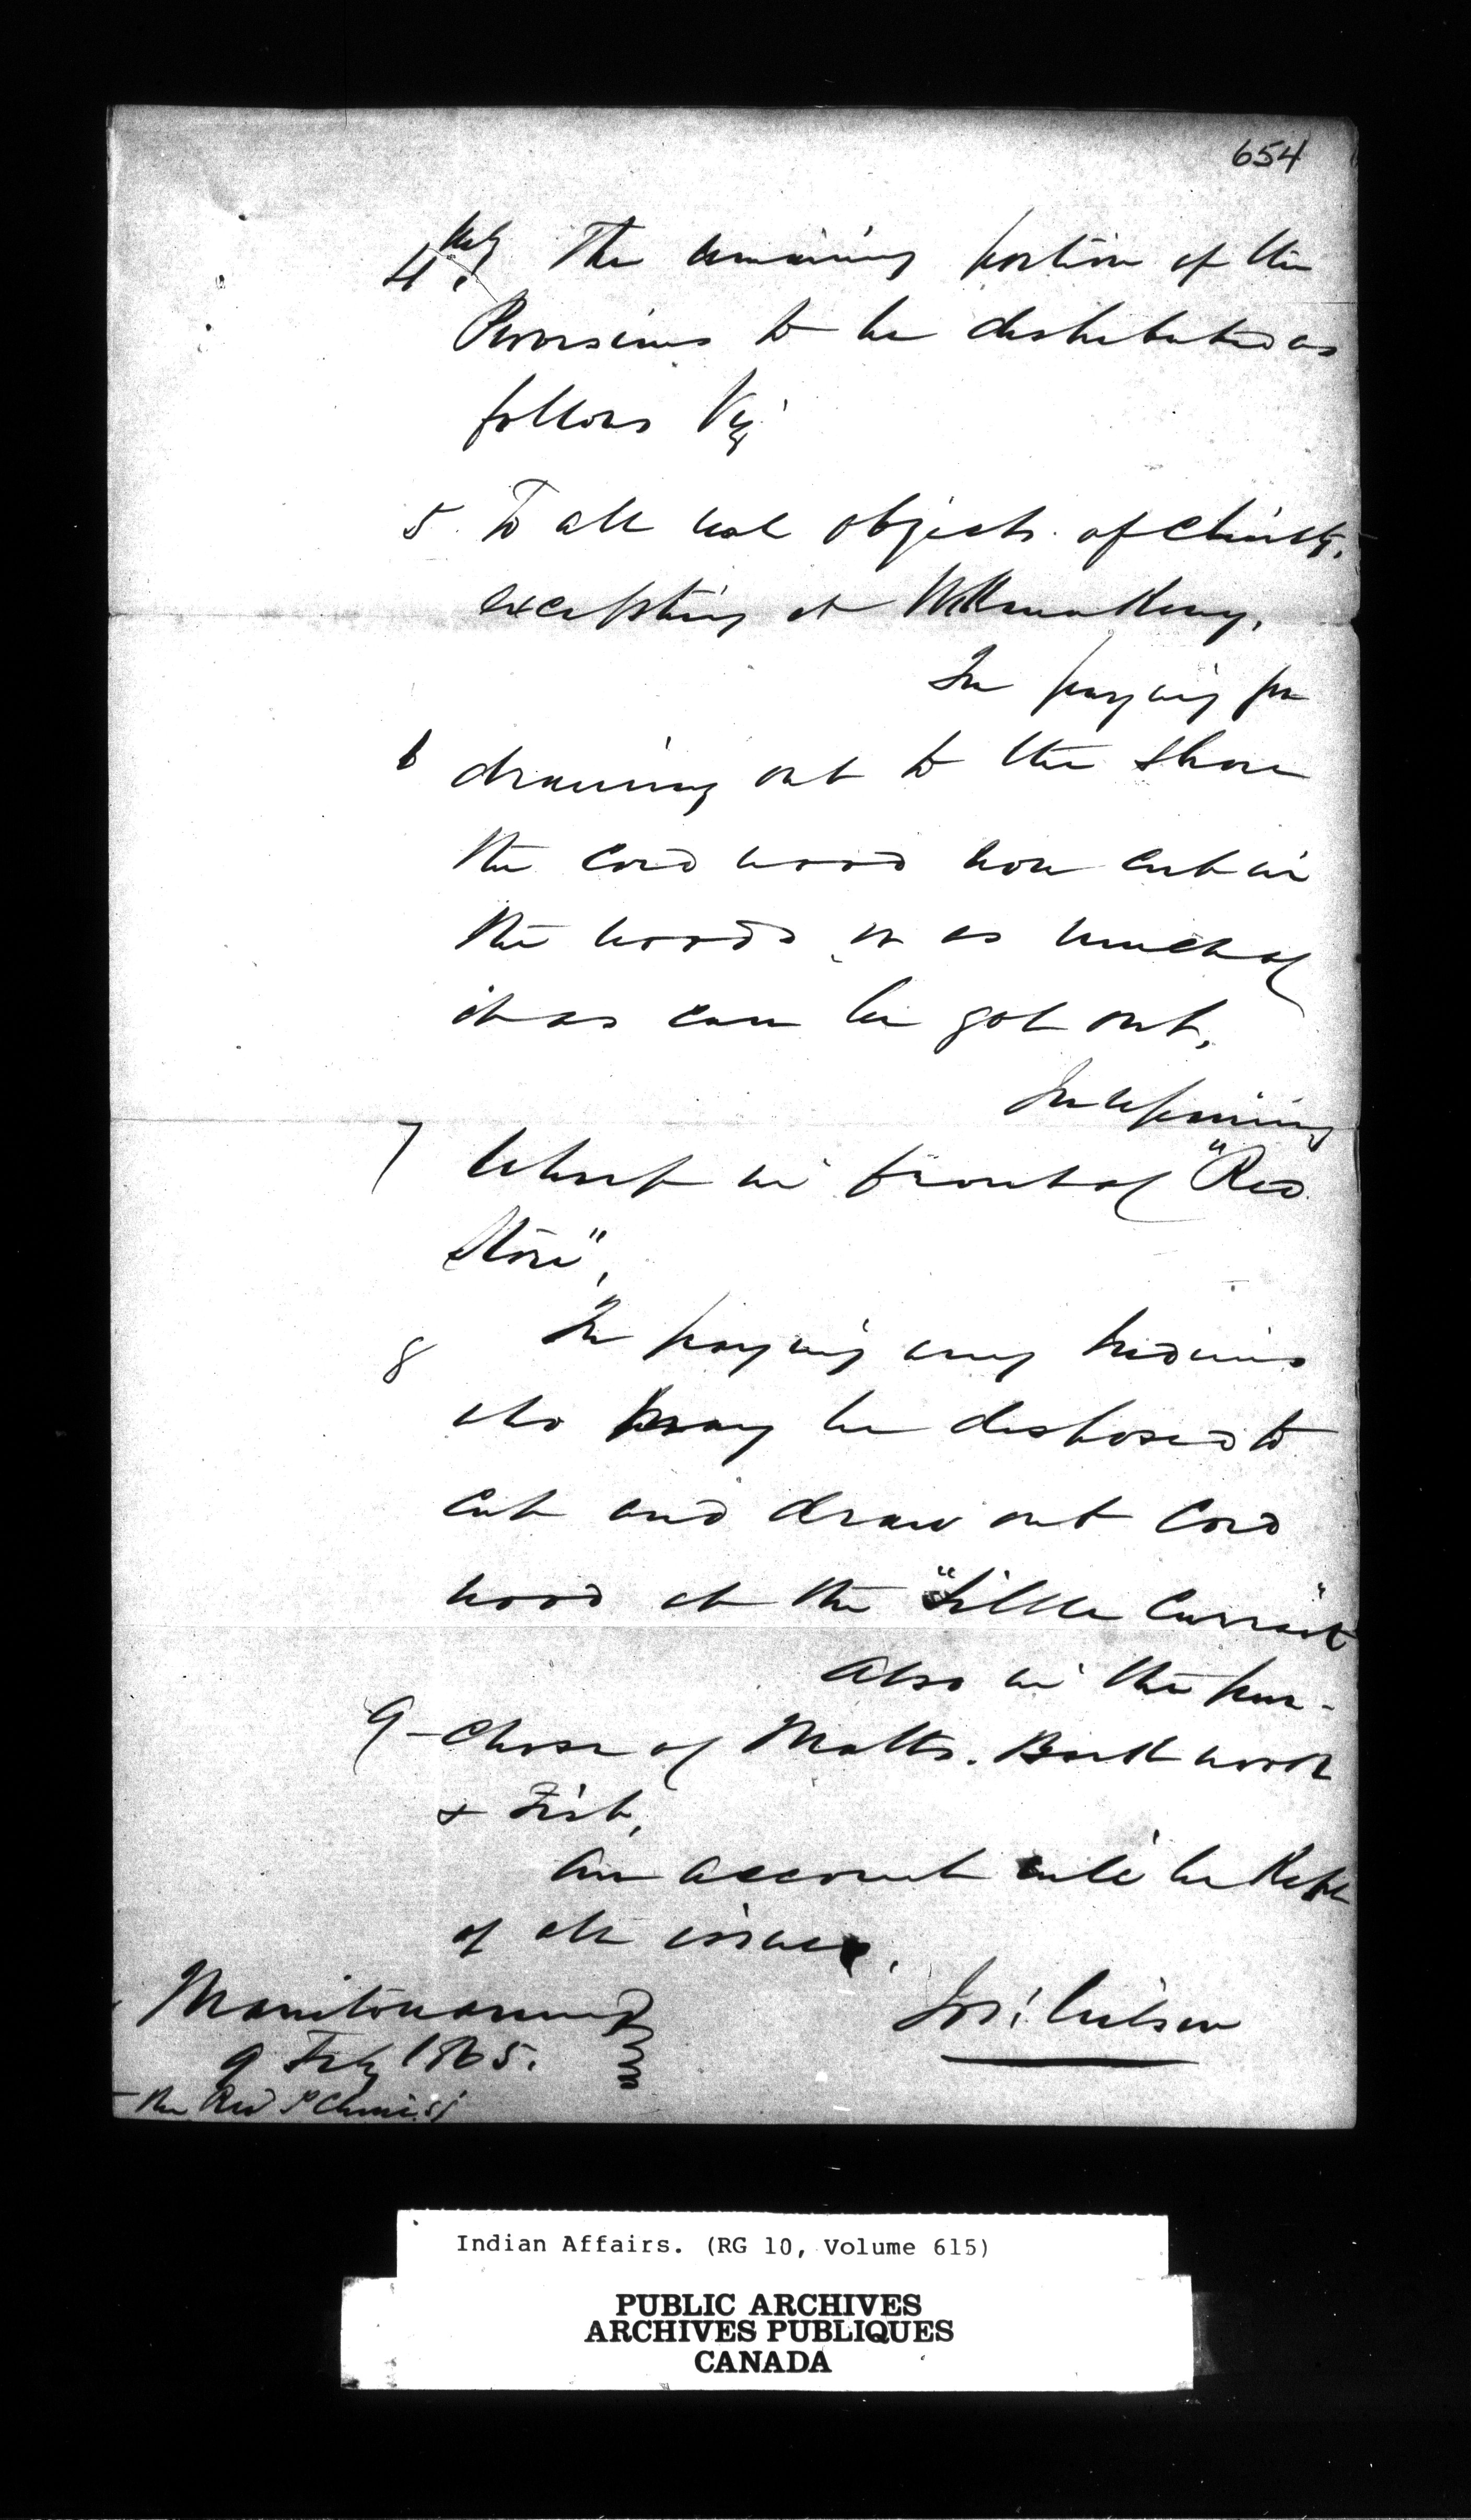 654
4thly The remaining portion of the
Provisions to be distributed as
follows Viz
5. To all real objects of Charity.
excepting at
In paying for
6 drawing out to the Shore
the Cord wood now cut in
the woods or as much of
it as can be got out,
In repairing
7 Wharf in front of "Red
Store",
8 In paying any Indians
who may be disposed to
cut and draw out Cord
wood at the "Little Current"
Also in the pur-
9 - chase of Matts. Bark work
& Fish,
An account will be Kept
of all issues.
Manitowaning
9 Feby 1865.
Jos: Wilson
The Revd P
Indian Affairs. (RG 10, Volume 615)
PUBLIC ARCHIVES
ARCHIVES PUBLIQUES
CANADA